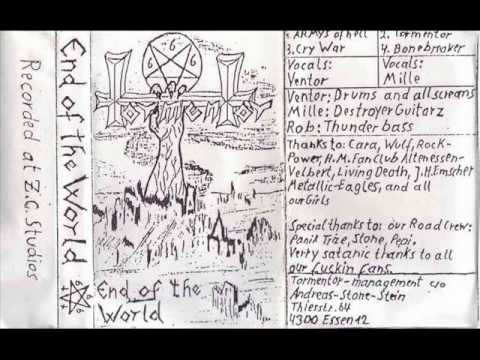 End of the World
Recorded at Z.C. Studios
666
666
Tormentor
End of the
World
1. Armys of hell 2. Tormentor
3. Cry War 4. Bonebreaker
Vocals: Vocals:
Ventor Mille
Ventor: Drums and all screams
Mille: Destroyer Guitarz
Rob: Thunder bass
Thanks to: Cara, Wulf, Rock-
Power, H.M. Fan Club Altenessen-
Velbert, Living Death, J.H. Emscher
Metallic-Eagles, and all
our Girls
Special thanks to: our Road Crew:
Panik Trize, Stone, Pepi.
Verty satanic thanks to all
our fuckin fans.
Tormentor-management c/o
Andreas-Stone-Stein
Thierstr. 64
4300 Essen 12